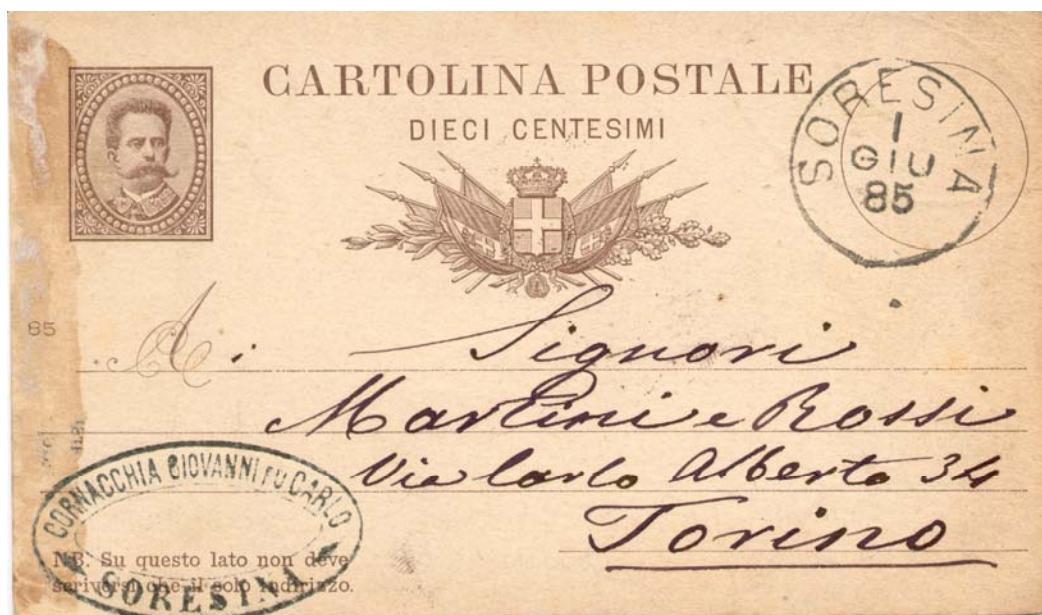 CARTOLINA POSTALE
DIECI CENTESIMI
SORESINA
1
GIU
85
85
Ai Signori
Martini e Rossi
Via Carlo Alberto 34
Torino
CORNACCHIA GIOVANNI FU CARLO
SORESINA
NB. Su questo lato non deve
scriversi che il solo indirizzo.